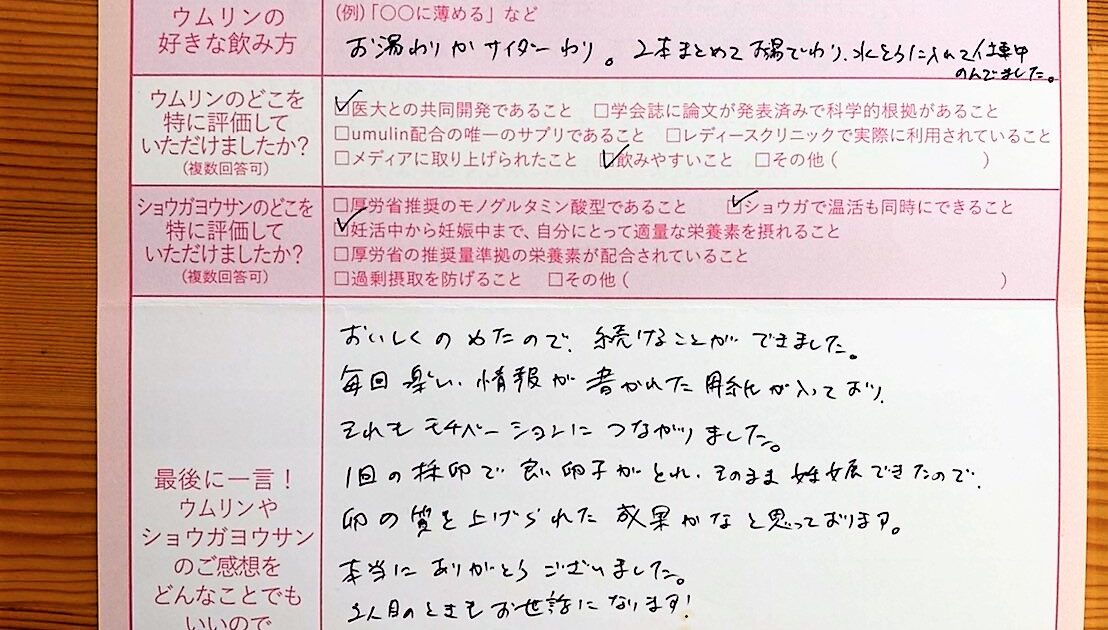 ウムリンの
好きな飲み方
(例)「〇〇に薄める」など
お湯わりかサイダーわり。2本まとめてお湯でわり、水とうに入れて仕事中
のんでました。
ウムリンのどこを
特に評価して
いただけましたか?
(複数回答可)
☑医大との共同開発であること □学会誌に論文が発表済みで科学的根拠があること
□umulin配合の唯一のサプリであること □レディースクリニックで実際に利用されていること
□メディアに取り上げられたこと ☑飲みやすいこと □その他( )
ショウガヨウサンのどこを
特に評価して
いただけましたか?
(複数回答可)
□厚労省推奨のモノグルタミン酸型であること ☑ショウガで温活も同時にできること
☑妊活中から妊娠中まで、自分にとって適量な栄養素を摂れること
□厚労省の推奨量準拠の栄養素が配合されていること
□過剰摂取を防げること □その他( )
最後に一言!
ウムリンや
ショウガヨウサン
のご感想を
どんなことでも
いいので
おいしくのめたので、続けることができました。
毎回楽しい情報が書かれた用紙が入っており、
それもモチベーションにつながりました。
1回の採卵で良い卵子がとれ、そのまま妊娠できたので、
卵の質を上げられた成果かなと思っております。
本当にありがとうございました。
2人目のときもお世話になります!